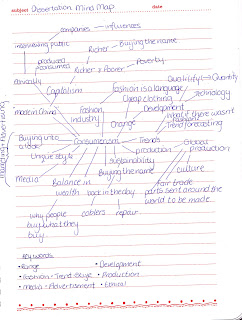 subject Dissertation Mind Map date
companies influences
interviewing public
Richer Buying the name
producing
consumerism
Poverty
Richer & Poorer
Quality (!) → Quantity
Capitalism
Fashion is a language
technology
Cheap clothing
made in China
Fashion
industry
Development
Change
What if there wasn't
fashion
trend forecasting
Buying into
a look
Consumerism
Trends
Global
production
production
Unique style
sustainability
Media
Buying the name
culture
Balance in
wealth
back in the day
Fair trade
parts sent around the
world to be made
why people
buy what they
buy
coblers
repair
Key words
• Range
• Development
• Fashion • Trend
• Production
• Media • Advertisment
• Ethical